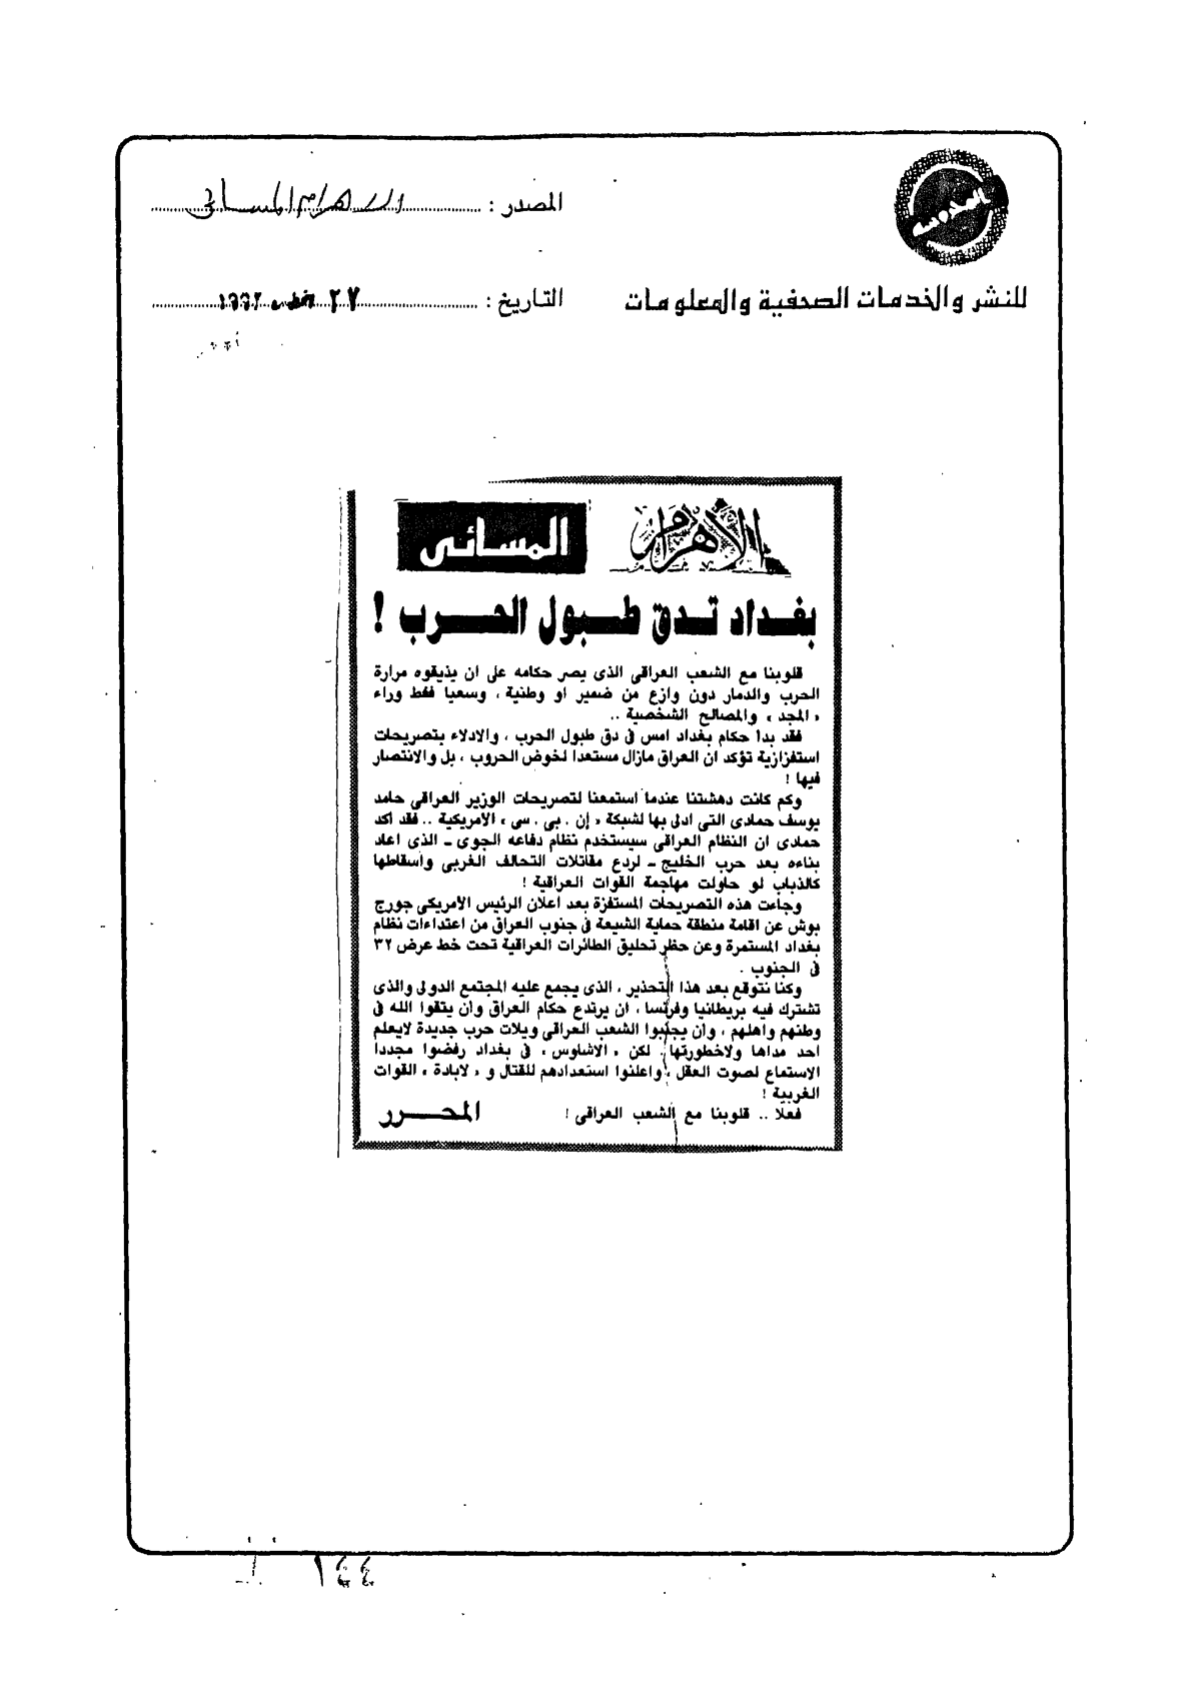 المصدر : الاهرام المسائى
للنشر والخدمات الصحفية والمعلومات
التاريخ : ٢٧ ١٩٩٢
الأهرام المسائى
بغداد تدق طبول الحرب !
قلوبنا مع الشعب العراقى الذى يصر حكامه على ان يذيقوه مرارة
الحرب والدمار دون وازع من ضمير او وطنية ، وسعيا فقط وراء
« المجد » والمصالح الشخصية ..
فقد بدا حكام بغداد امس فى دق طبول الحرب ، والادلاء بتصريحات
استفزازية تؤكد ان العراق مازال مستعدا لخوض الحروب ، بل والانتصار
فيها !
وكم كانت دهشتنا عندما استمعنا لتصريحات الوزير العراقى حامد
يوسف حمادى التى ادلى بها لشبكة « إن . بى . سى » الامريكية .. فقد اكد
حمادى ان النظام العراقى سيستخدم نظام دفاعه الجوى ـ الذى اعاد
بناءه بعد حرب الخليج ـ لردع مقاتلات التحالف الغربى واسقاطها
كالذباب لو حاولت مهاجمة القوات العراقية !
وجاءت هذه التصريحات المستفزة بعد اعلان الرئيس الامريكى جورج
بوش عن اقامة منطقة حماية الشيعة فى جنوب العراق من اعتداءات نظام
بغداد المستمرة وعن حظر تحليق الطائرات العراقية تحت خط عرض ٣٢
فى الجنوب .
وكنا نتوقع بعد هذا التحذير ، الذى يجمع عليه المجتمع الدولى والذى
تشترك فيه بريطانيا وفرنسا ، ان يرتدع حكام العراق وان يتقوا الله فى
وطنهم واهلهم ، وان يجنبوا الشعب العراقى ويلات حرب جديدة لايعلم
احد مداها ولاخطورتها . لكن « الاشاوس » فى بغداد رفضوا مجددا
الاستماع لصوت العقل ، واعلنوا استعدادهم للقتال و « لابادة » القوات
الغربية !
فعلا .. قلوبنا مع الشعب العراقى !
المحرر